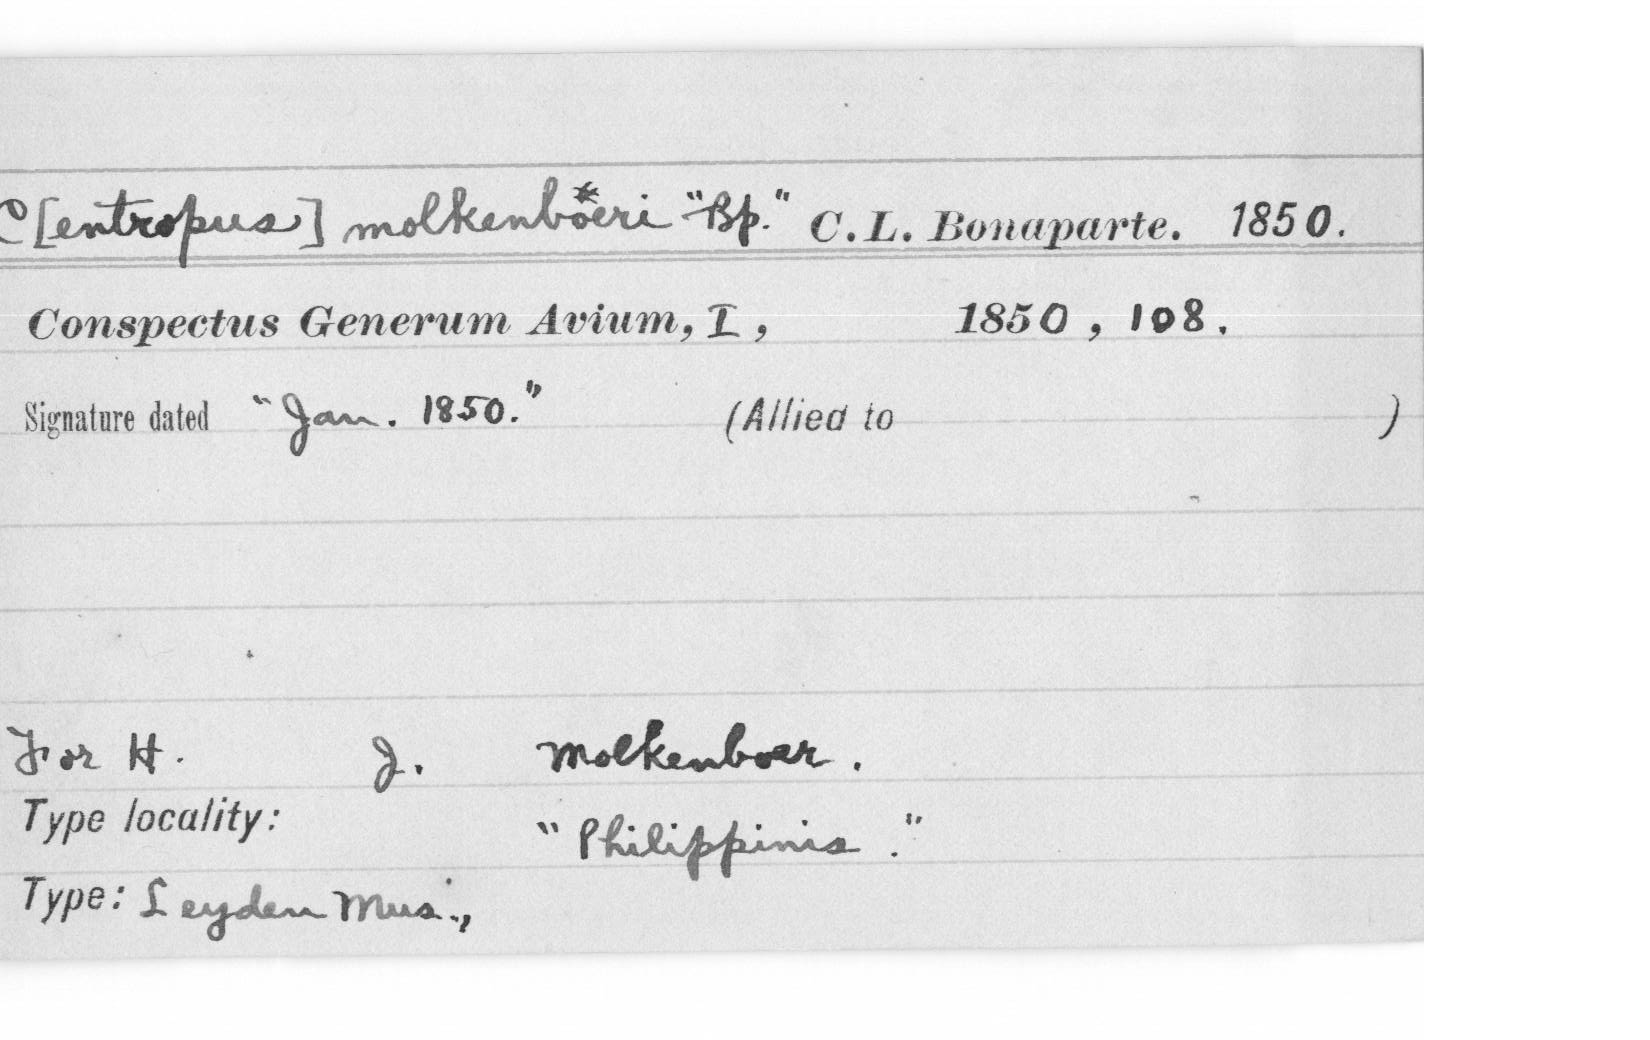 C[entropus] molkenböeri "Bp." C. L. Bonaparte. 1850.
Conspectus Generum Avium, I, 1850, 108.
Signature dated "Jan. 1850." (Allied to )
For H. J. Molkenboer.
Type locality: "Philippinis."
Type: Leyden Mus.,